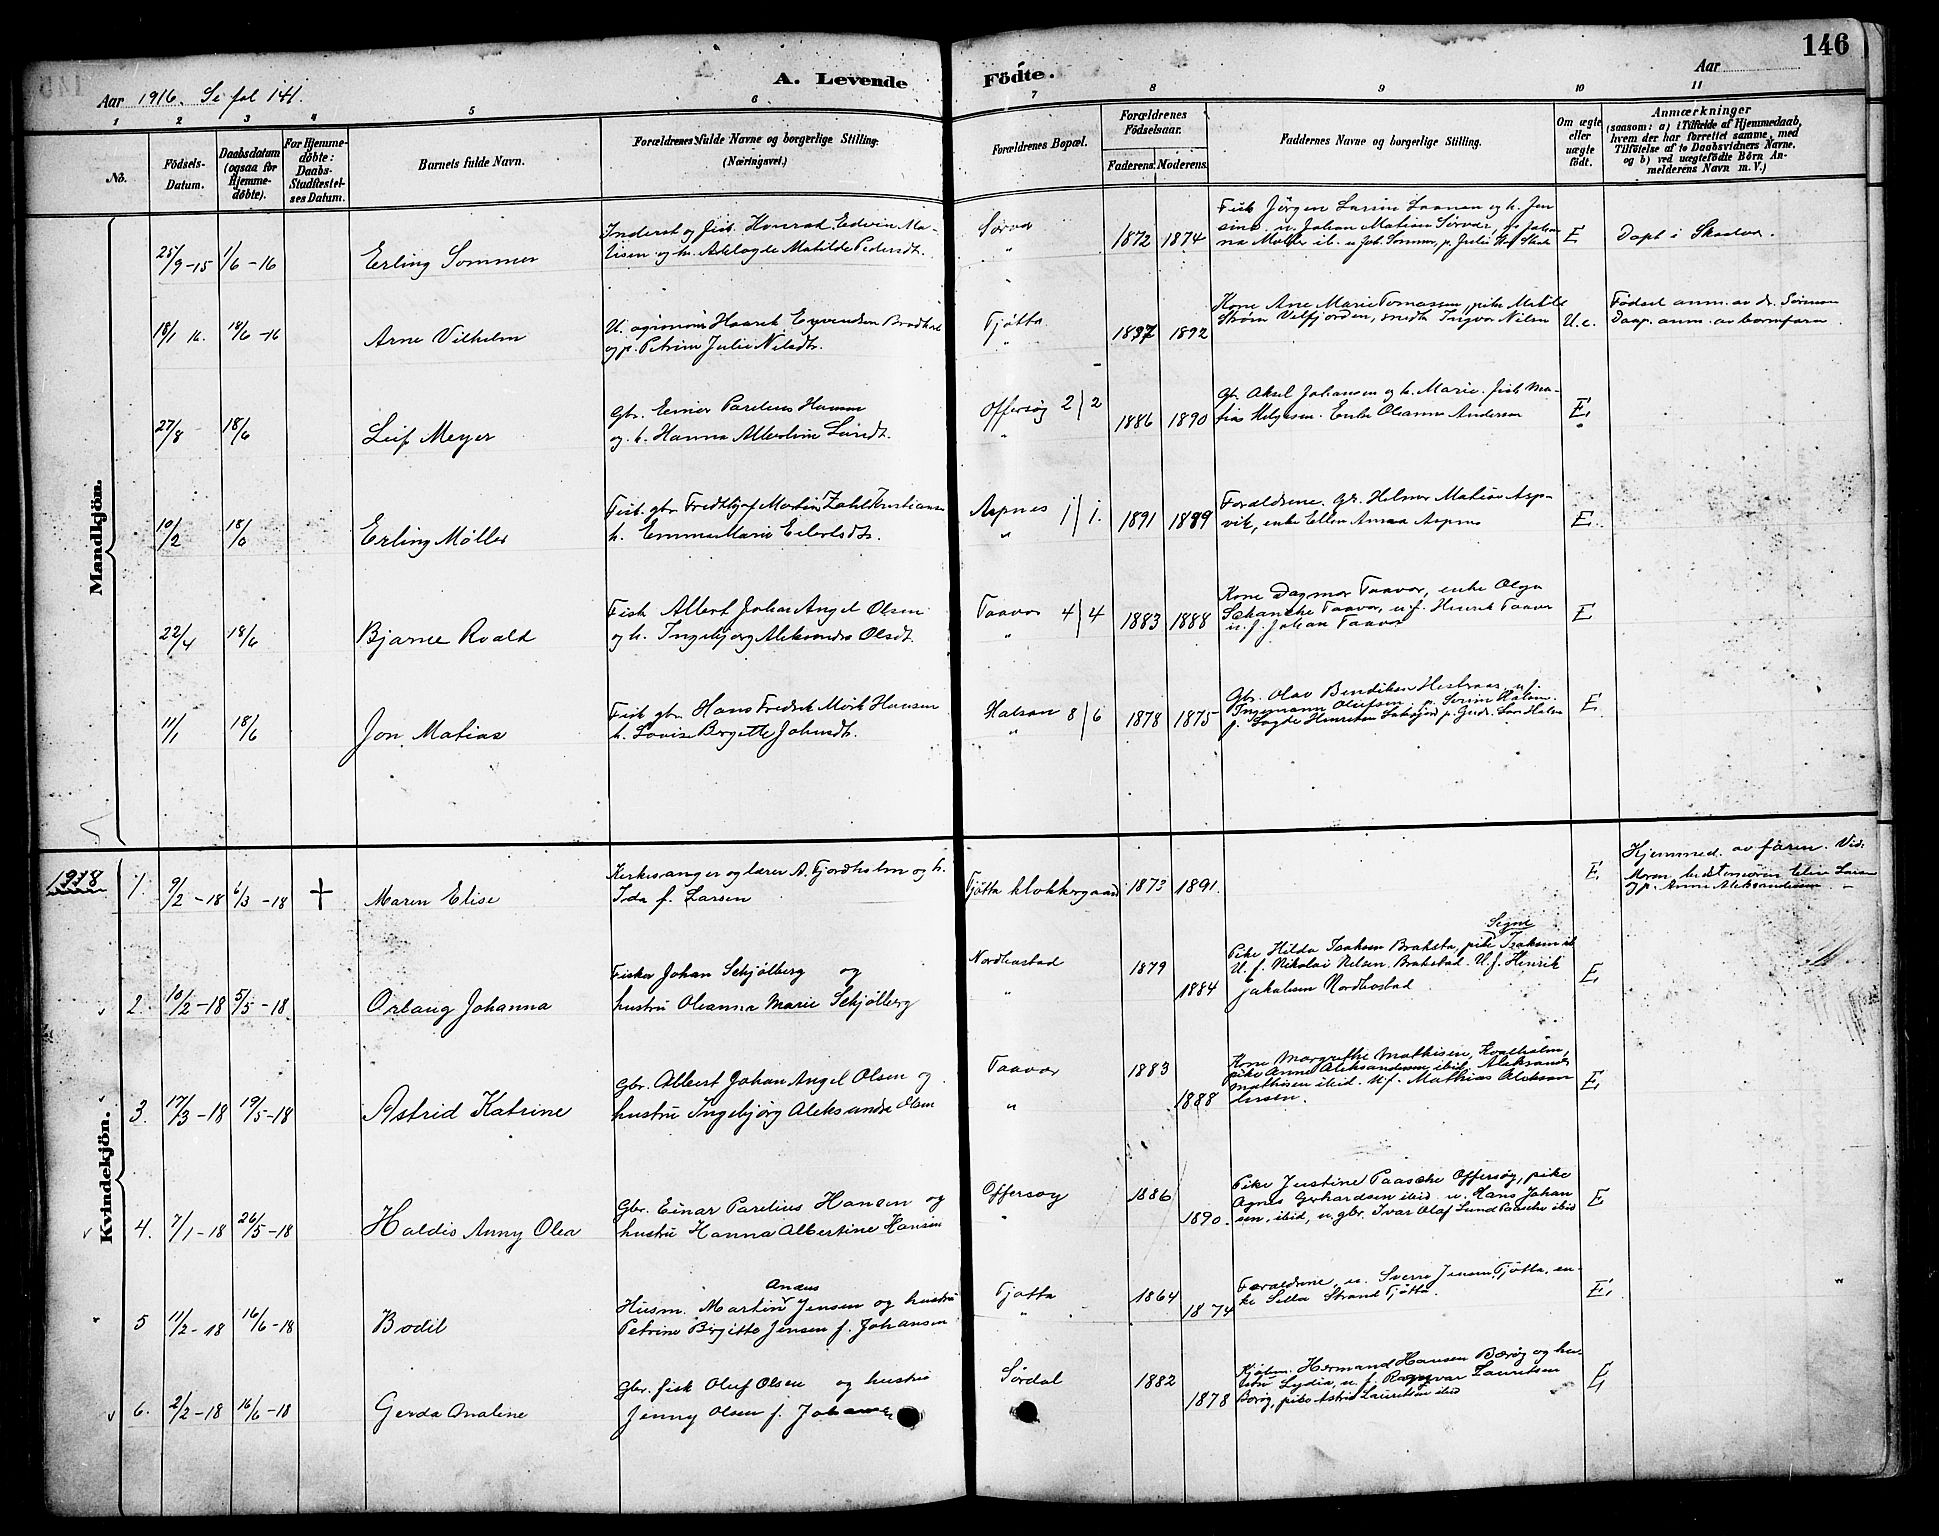 146
A. Levende Födte.
Aar 1916. Se fol 141.
Aar
1 2 3 4 5 6 7 8 9 10 11
No.
Födsels-Datum.
Daabsdatum (ogsaa for Hjemme-döbte).
For Hjemme-döbte: Daabs-Stadfæstel-ses Datum.
Barnets fulde Navn.
Forældrenes fulde Navne og borgerlige Stilling. (Næringsvei.)
Forældrenes Bopæl.
Forældrenes Födselsaar.
Faderens. Moderens.
Faddernes Navne og borgerlige Stilling.
Om ægte eller uægte født.
Anmærkninger
(saasom: a) i Tilfælde af Hjemmedaab,
hvem der har forrettet samme, med
Tilföielse af to Daabsvidners Navne.
og b) ved uægtefödte Börn An-
melderens Navn m. V.)
Mandkjön.
25/9-15 1/6-16 Erling Sommer
Inderst og fisk. Konrad Edvin Ma-
tisen og h. Adelagde Matilde Pedersdt.
Sørvær
"
1872 1874
Fisk Jørgen Larsen og h. Jen
sine. u. Johan Matisen Sørvær,
E
Døpt i Skaalvær.
18/1 16. 18/6-16 Arne Vilhelm
U. og Haarek Eyvindsen
og p. Petrine Julie Nilsdtr.
Tjøtta
"
1887 1892
Kone Ane Marie Tomassen, pike Matilde
Strøm Velfjorden, smedk Ingvar Nilsen
U.e.
Fødsel anm. av dr. Sørensen
Daap. anm. av barnefaren.
27/8 18/6 Leif Meyer
Gbr. Einar Parelius Hansen
og h. Hanna Albertine
Offersøy 2/2
"
1886 1890
Gbr. Aksel Johansen og h. Marie. fisk Ma-
tias Helgesen. Enke Oleanna Andersen
E.
10/2 18/6 Erling Møller
Fisk. gbr. Martin Zahl Kristiansen
h. Emma Marie Eilertsdtr.
Aspnes 1/1.
"
1891 1889
Forældrene. Gbr. Helmer Matias Asp-
vik, enke Ellen Anna Aspnes
E.
22/4 18/6 Bjarne Roald
Fisk Albert Johan Angel Olsen
og h. Ingebjørg Aleksandra Olsdt.
Taavær 4/4
"
1883 1888
Kone Dagmar Taavær, enke Olga
Schanche Taavær, u.f. Henrik Taavær
u. f. Johan Taavær
E
11/1 18/6 Jon Matias
Fisk gbr. Hans Fredrik Mørk Hansen
h. Lovise Birgitte Johnsdt.
Kalsøen 8/6
"
1878 1875
Gbr. Olav Bendiksen u f
Ingemann Olufsen, p. Serine
E
1918
Kvindekjön.
1. 9/2-18 6/3-18 † Maren Elise
Kirkesanger og lærer A. Fjordholm og h.
Ida f. Larsen
Tjøtta klokkergaard 1873 1891.
E.
Hjemmed. av faren. Vid.
Moren, bedstemoren Elise Larsen
og p. Anna Aleksandersen
2. 10/2-18 5/5-18 Orlaug Johanna
Fisker Johan Schjølberg og
hustru Oleanna Marie Schjølberg
Nordbostad
"
1879
1884
Signe
Pike Hilda Isaksen Braksta, pike Isaksen ib
U. f. Nikolai Nilsen Brakstad. U. f. Henrik
Jakobsen Nordbostad
E.
3. 17/3-18 19/5-18 Astrid Katrine
Gbr. Albert Johan Angel Olsen og
hustru Ingebjørg Aleksandra Olsen
Taavær
"
1883
1888
Kone Margrethe Mathisen, Kvalholm,
pike Anna Aleksandersen ibid, Aleksander
Mathisen ibid. U. f. Mathias Aleksan
dersen.
E.
4. 7/1-18 26/5-18 Haldis Anny Olea
Gbr. Einar Parelius Hansen og
hustru Hanna Albertine Hansen
Offersøy
"
1886
1890
Pike Justine Paasche Offersøy, pike
Agnes Gerhardsen ibid. u. Hans Johan
sen, ibid, u. gbr. Ivar Olaf Lund Paasche ibid
E
5 11/2-18 16/6-18 Bodil
Andeus
Husm. Martin Jensen og hustru
Petrine Birgitte Jensen f. Johansen
Tjøtta
"
1864
1874
Forældrene, u. Sverre Jensen, Tjøtta, en-
ke Silla Strand Tjøtta.
E.
6. 2/2-18 16/6-18 Gerda Analine
Gbr. fisk Oluf Olsen og hustru
Jenny Olsen f. Johansen
Sørdal
1882
1878
Kjøbm. Hermand Hansen Bærøy og hu-
stru Lydia, u. f. Ragnvar Lauritsen
Bærøy, pike Astrid Lauritsen ibid
E